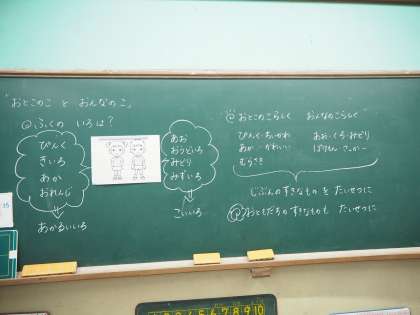 "おとこのこ と おんなのこ"
ふくの いろは？
ぴんく
きいろ
あか
おれんじ
あかるいいろ
あお
おうどいろ
みどり
みずいろ
こいいろ
おとこのこらしく おんなのこらしく
ぴんく・ちいかわ
あか かわいい
むらさき
あお・くろ・みどり
じぶんのすきなものを たいせつに
おともだちのすきなものも たいせつに
15
3 4 5 6 7 8 9 10